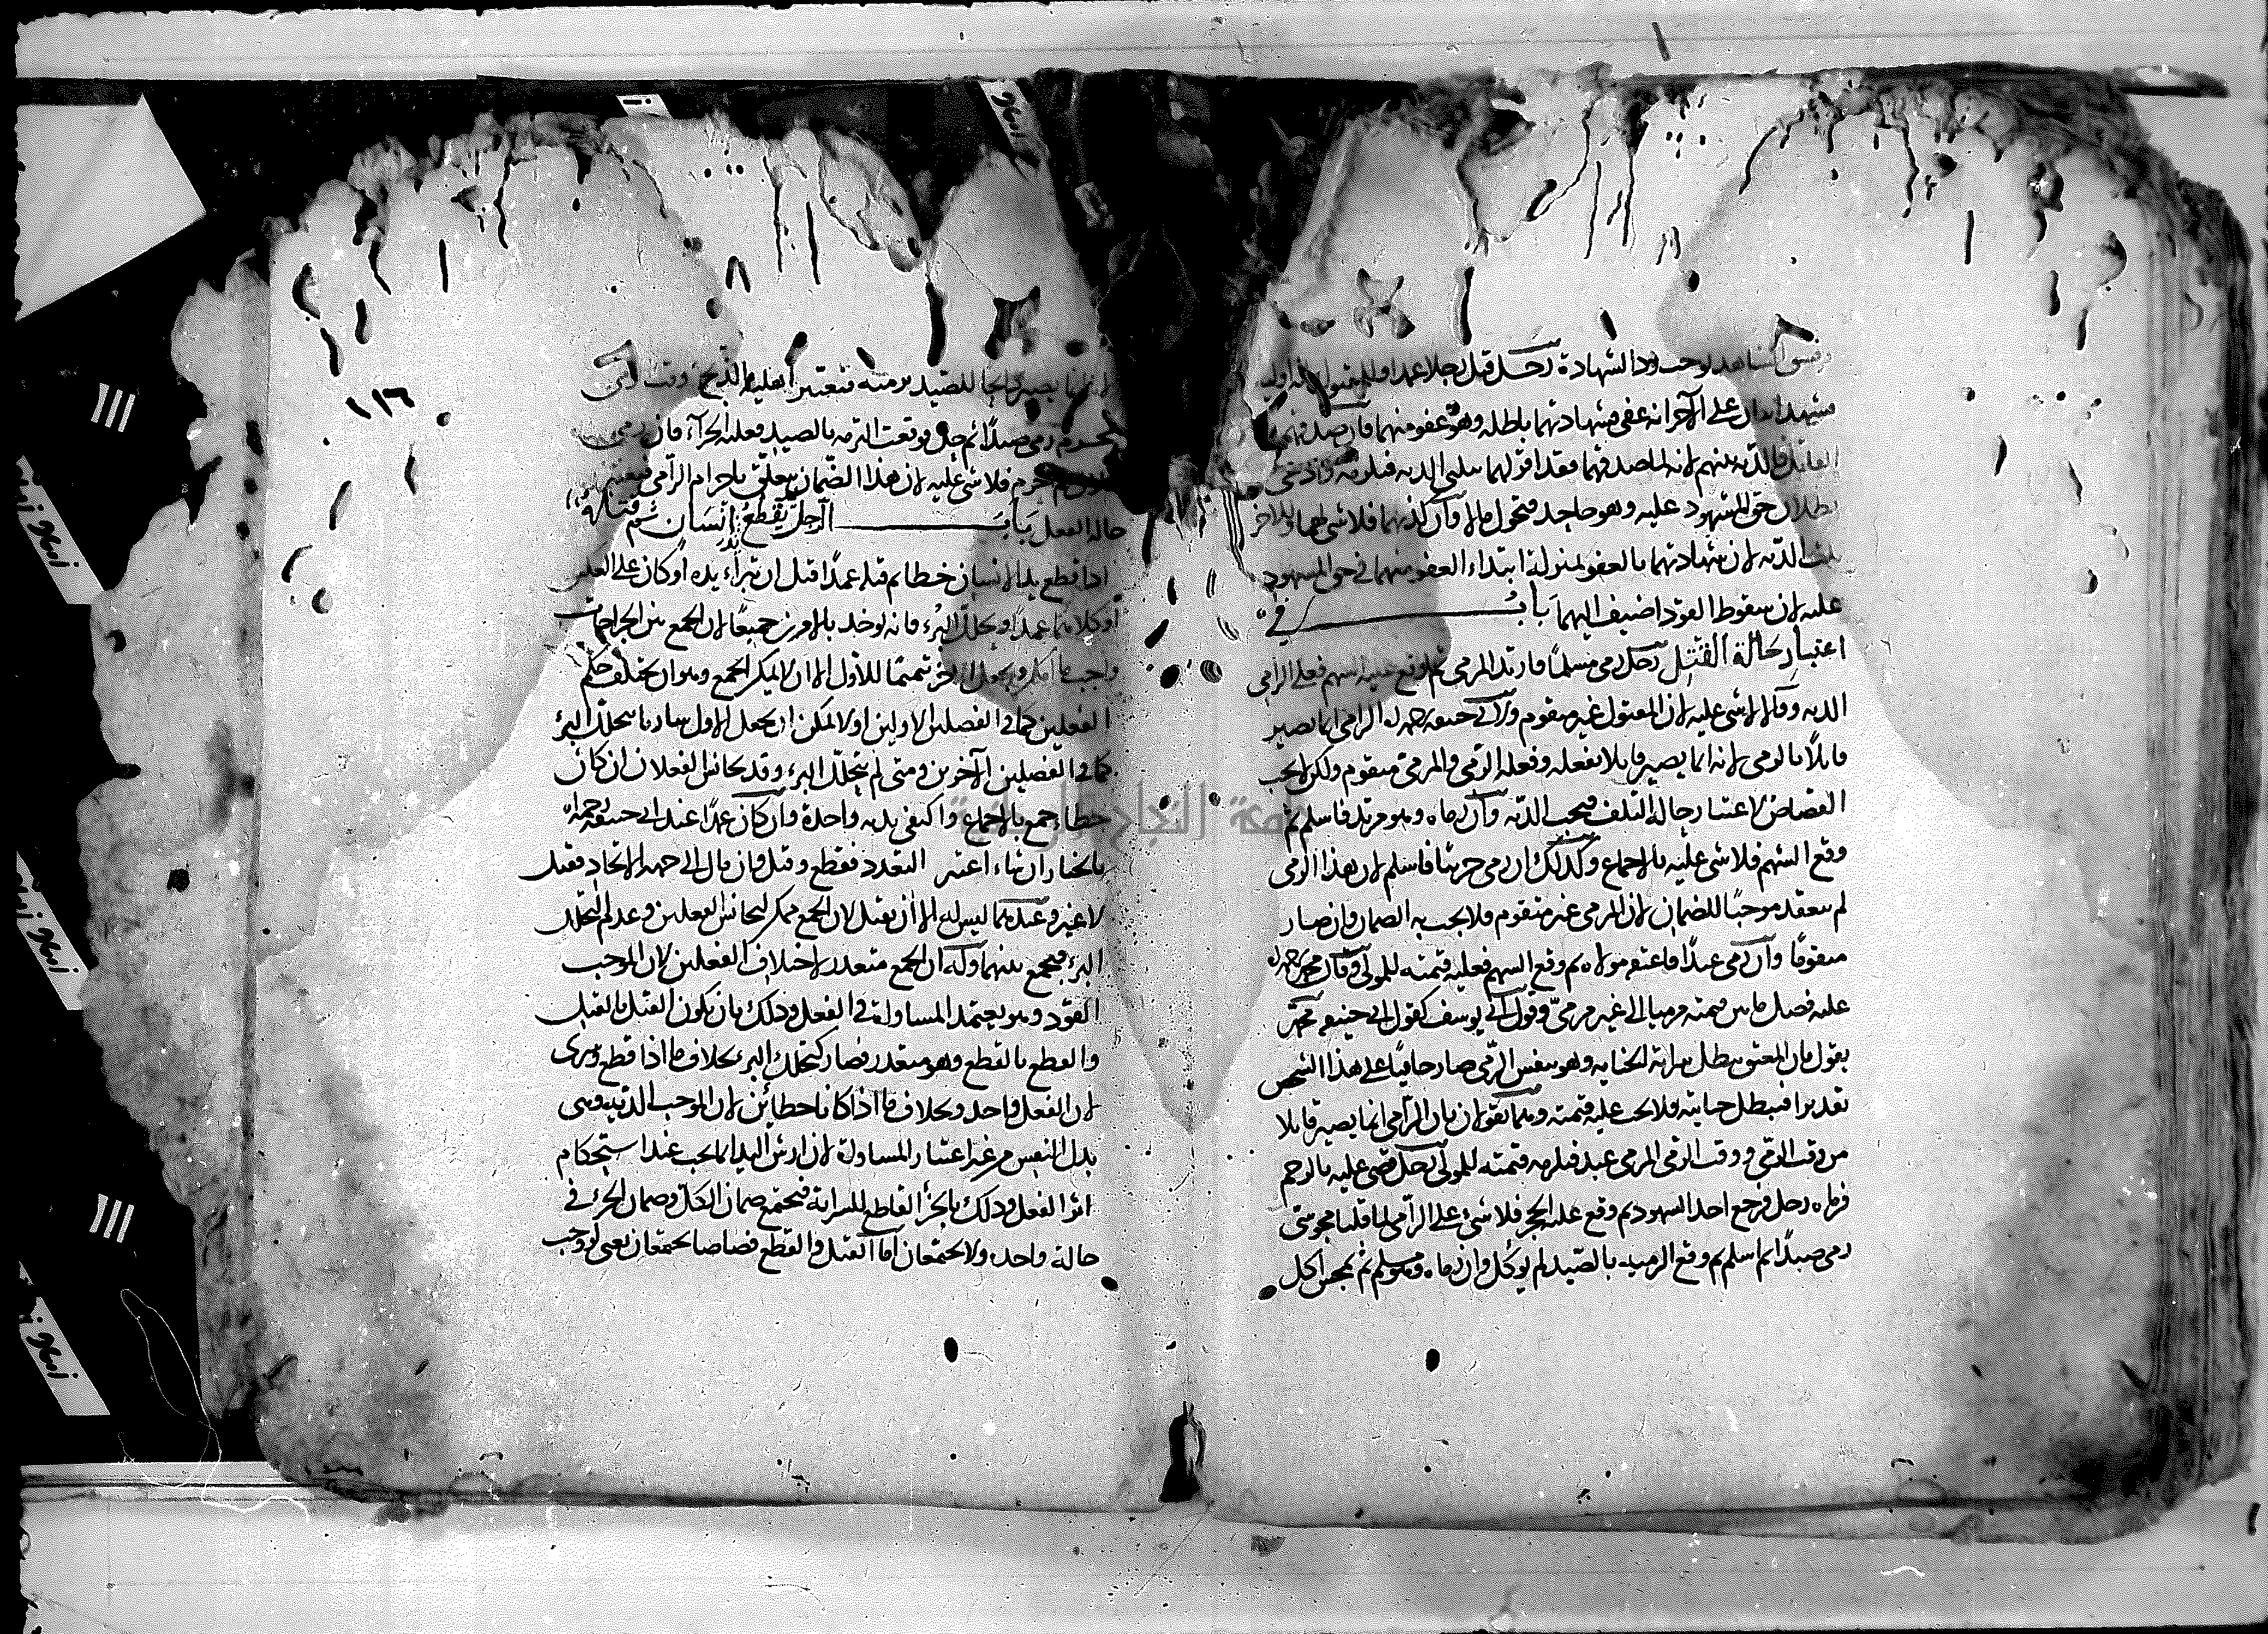 فسق الشاهد يوجب رد الشهادة رجل قتل رجلا عمدا وللمقتول ثلثه اوليا
فشهد اثنان على الآخر انه عفى فشهادتهما باطلة وهو عفو منهما فان صدقهما
القاتل فالدية بينهم لانه لما صدقهما فقد اقر لهما بثلثى الدية فيلزمه وادعى
بطلان حق المشهود عليه وهو جاحد فتحول مالا وان كذبهما فلا شى لهما وللاخر
ثلث الدية لان شهادتهما بالعفو بمنزلة ابتداء العفو منهما فى حق المشهود
عليه لان سقوط القود اضيف اليهما باب فى
اعتبار حالة القتل رجل رمى مسلما فارتد المرمى ثم وقع عليه السهم فعلى الرامى
الدية وقالا لا شى عليه لان المقتول غير متقوم ولابى حنيفه رحمه الله ان الرامى انما يصير
قاتلا بالرمى لانه انما يصير قاتلا بفعله وفعله الرمى والمرمى متقوم ولكن لا يجب
القصاص لاعتبار حالة التلف فيجب الدية وان رماه وهو مرتد فاسلم ثم
وقع السهم فلا شى عليه بالاجماع وكذلك ان رمى حربيا فاسلم لان هذا الرمى
لم ينعقد موجبا للضمان لان المرمى غير متقوم فلا يجب به الضمان وان صار
متقوما وان رمى عبدا فاعتقه مولاه ثم وقع السهم فعليه قيمته للمولى وقال محمد رحمه الله
عليه فضل ما بين قيمته مرميا الى غير مرمى وقول ابى يوسف كقول ابى حنيفه محمد
يقول بان المعتق يبطل سراية الجناية وهو بنفس الرمى صار جانيا على هذا الشخص
تقديرا فيبطل جنايته فلا يجب عليه قيمته وهما يقولان بان الرامى انما يصير قاتلا
من وقت الرمى ووقت الرمى المرمى عبد فيلزمه قيمته للمولى رجل قضى عليه بالرجم
فرماه رجل فرجع احد الشهود ثم وقع عليه الحجر فلا شىء على الرامى لما قلنا مجوسى
رمى صيدا ثم اسلم ثم وقع الرمية بالصيد لم يؤكل وان رماه وهو مسلم ثم تمجس اكل
١١٦
لانه انما يصير ذابحا للصيد برميه فتعتبر اهلية الذبح وقت الرمى
محرم رمى صيدا ثم حل فوقعت الرمية بالصيد فعليه الجزاء فان رمى
حلال ثم احرم فلا شى عليه لان هذا الضمان يتعلق باحرام الرامى فيعتبر
حالة الفعل باب الرجل يقطع يد انسان ثم قتله
اذا قطع يد الانسان خطا ثم قتله عمدا قبل ان تبراء يده او كان على العكس
او كلاهما عمدا وتخلل البرء فانه يوخذ بالامرين جميعا لان الجمع بين الجراحات
واجب ما امكن ويجعل الاخر متمما للاول الا ان لا يمكن الجمع وهو ان يختلف حكم
الفعلين كما فى الفصلين الاولين او لا يمكن ان يجعل الاول ساريا بتخلل البرء
كما فى الفصلين الآخرين ومتى لم يتخلل البرء وقد تجانس الفعلان ان كان
خطا يجمع بالاجماع واكتفى بدية واحدة وان كان عمدا عند ابى حنيفه رحمه الله
بالخيار ان شاء اعتبر التعدد فقطع وقتل وان مال الى جهة الاتحاد فقتل
لا غير وعندهما ليس له الا ان يقتل لان الجمع ممكن لتجانس الفعلين وعدم التخلل
البرء فيجمع بينهما وله ان الجمع متعذر لاختلاف الفعلين لان الموجب
القود وهو يعتمد المساواة فى الفعل وذلك بان يكون القتل بالقتل
والقطع بالقطع وهو متعذر فصار كتخلل البرء بخلاف ما اذا قطع وسرى
لان الفعل واحد وبخلاف ما اذا كانا خطائين لان الموجب الدية وهى
بدل النفس من غير اعتبار المساواة لان ارش اليد انما يجب عند استحكام
اثر الفعل وذلك بالجز القاطع للسراية فيجتمع ضمان الكل وضمان الجزء فى
حالة واحدة ولا يجتمعان اما القتل والقطع قصاصا يجتمعان يعنى لو وجب